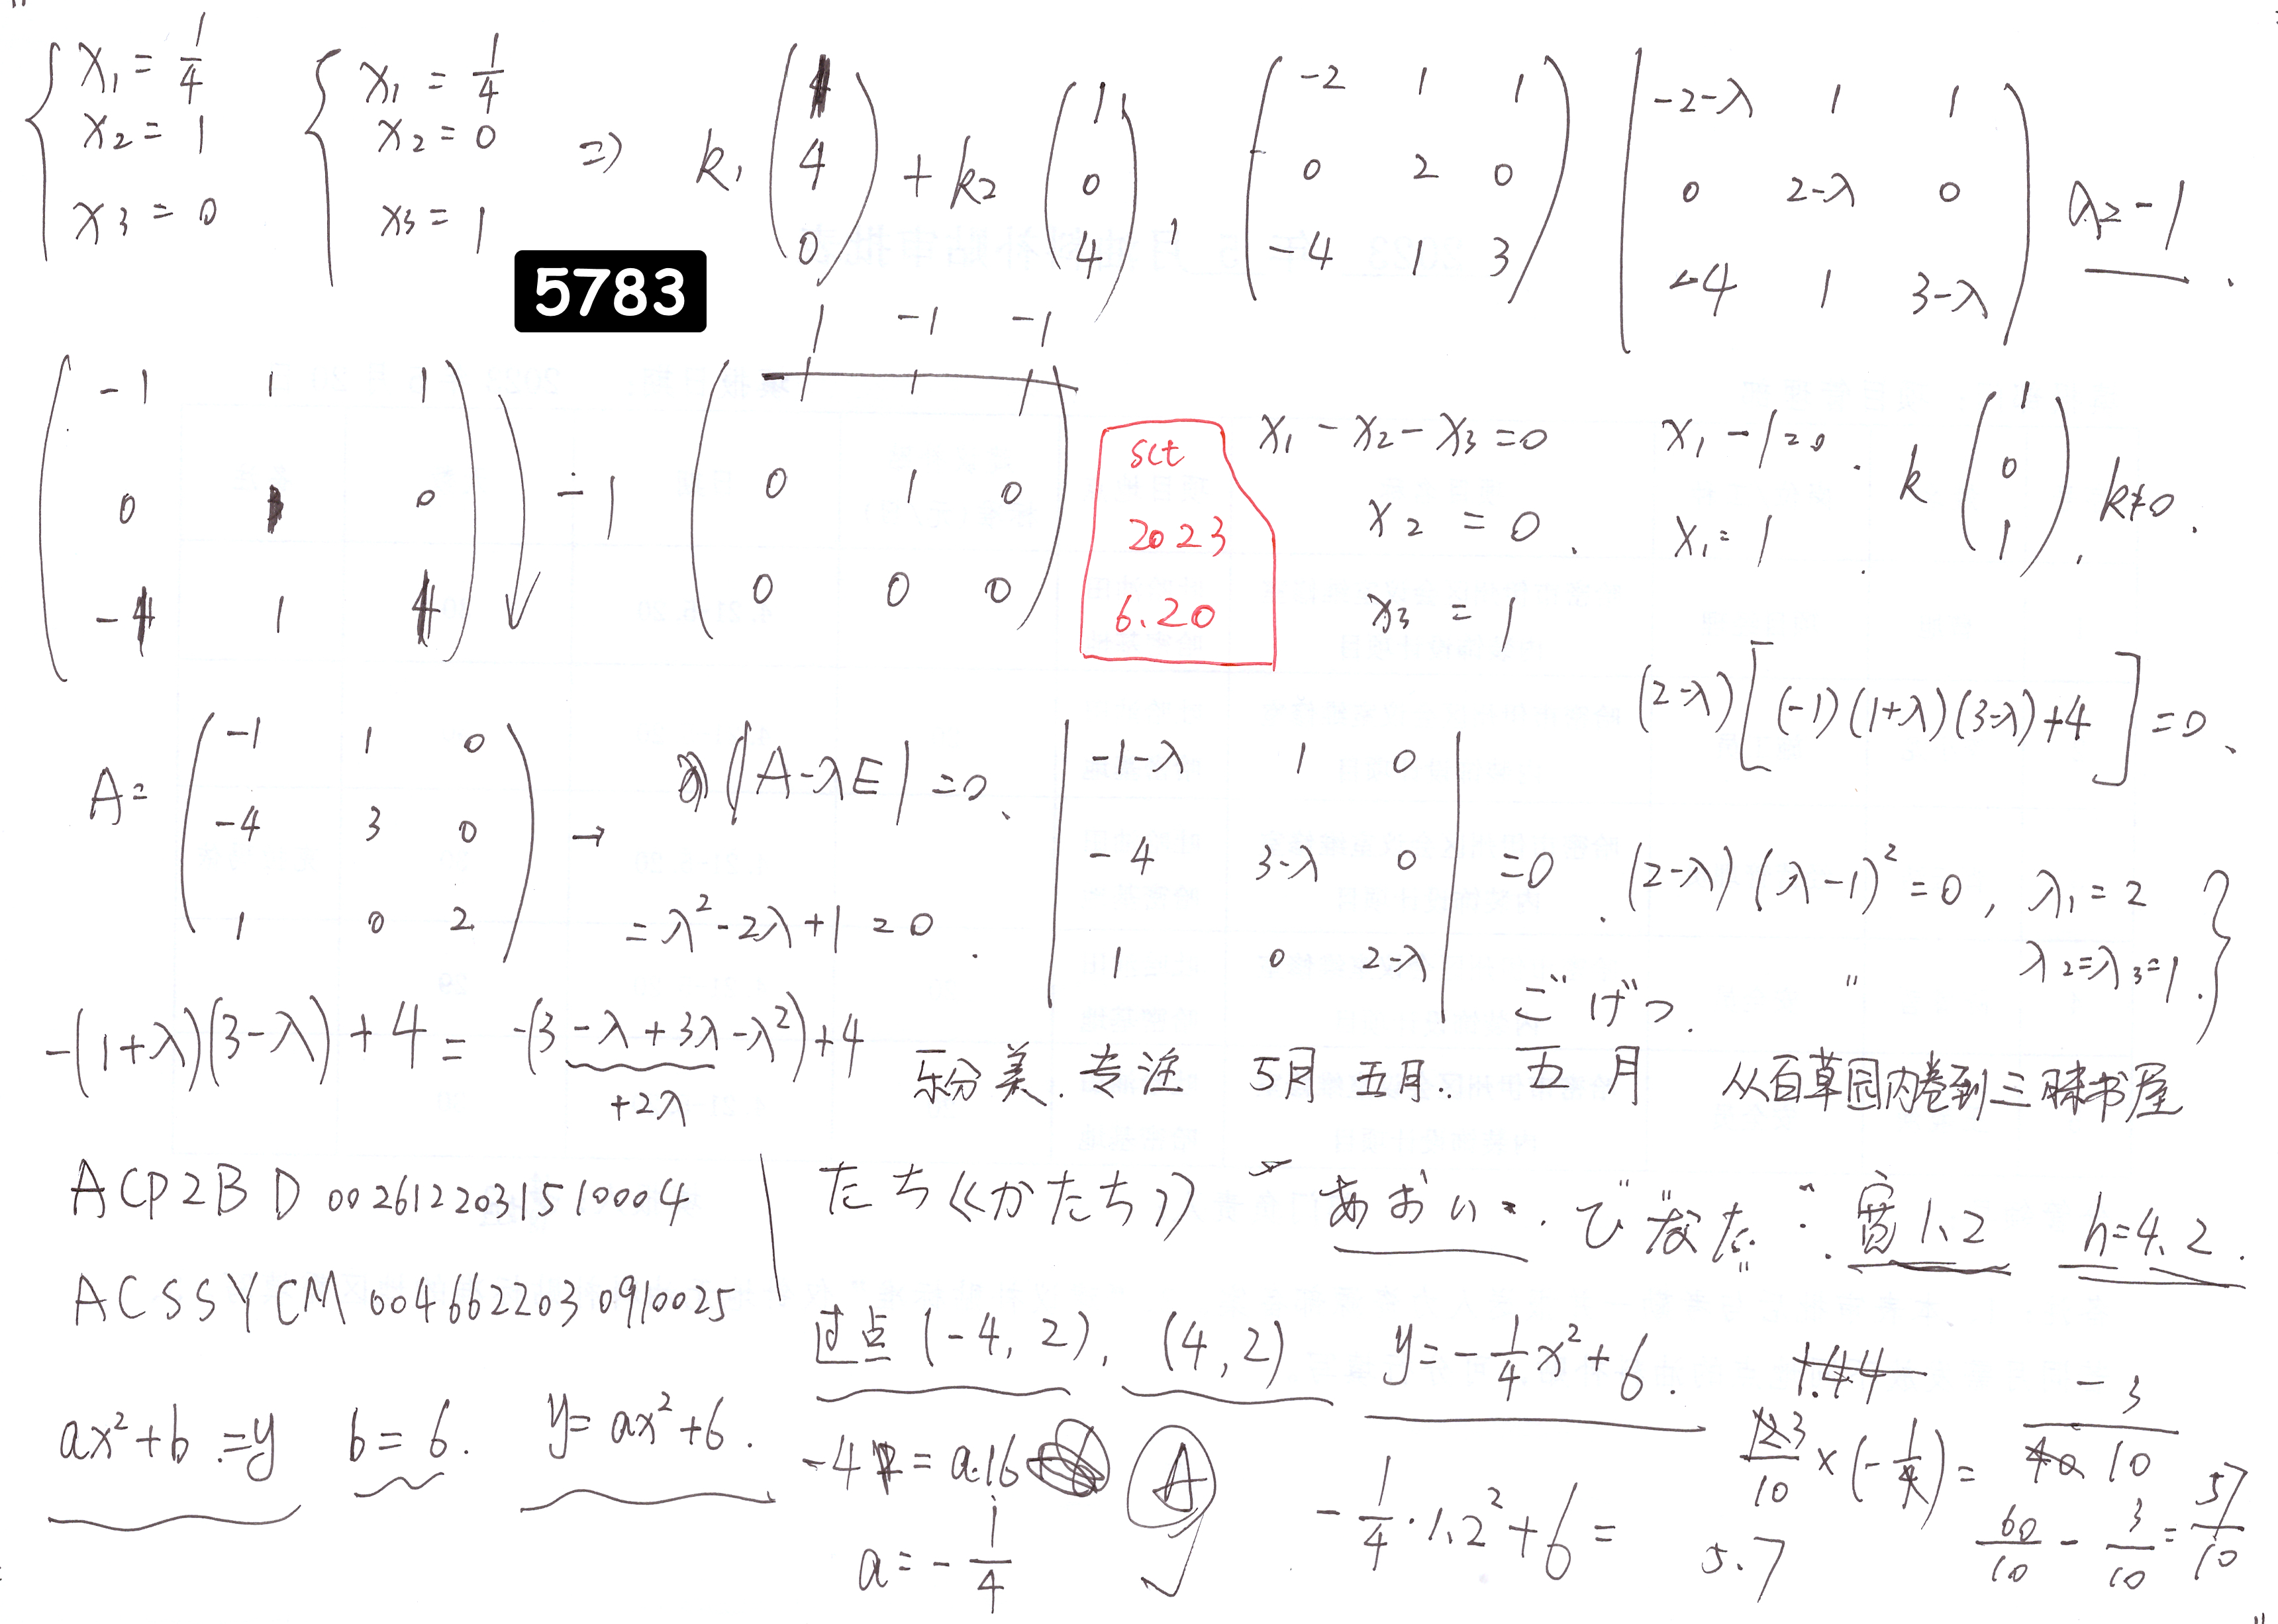 x₁ = 1/4
x₂ = 1
x₃ = 0
x₁ = 1/4
x₂ = 0
x₃ = 1
⇒ k₁ (1 4 0) + k₂ (1 0 4),
-2 1 1
0 2 0
-4 1 3
-2-λ 1 1
0 2-λ 0
-4 1 3-λ
5783
-1 1 1
0 1 0
-4 1 4
÷ 1
1 -1 -1
-1 1 1
0 1 0
0 0 0
sct
2023
6.20
x₁ - x₂ - x₃ = 0
x₂ = 0.
x₃ = 1
x₁ - 1 = 0.
x₁ = 1.
k (1 0 1), k≠0.
A=
-1 1 0
-4 3 0
1 0 2
→ |A-λE| = 0.
= λ² - 2λ + 1 = 0.
-1-λ 1 0
-4 3-λ 0
1 0 2-λ
= 0.
(2-λ)[(-1)(1+λ)(3-λ)+4] = 0.
(2-λ)(λ-1)² = 0, λ₁ = 2
λ₂=λ₃=1.
-(1+λ)(3-λ)+4 = -(3-λ+3λ-λ²)+4
+2λ
ごげつ.
乐分美. 专注 5月 五月. 五 月 从百草园内卷到三味书屋
ACP2BD0026122031510004
ACSSYCM0046622030910025
たち《かたち》 あおい 宽1.2 h=4.2.
过点(-4, 2), (4, 2) y=-1/4x²+6.
ax²+b=y b=6. y=ax²+6.
-4=a·16
a=-1/4
A
-1/4·1.2²+6=
5.7
1.44
×(-1/4)= -3/10
60/10 - 3/10 = 57/10